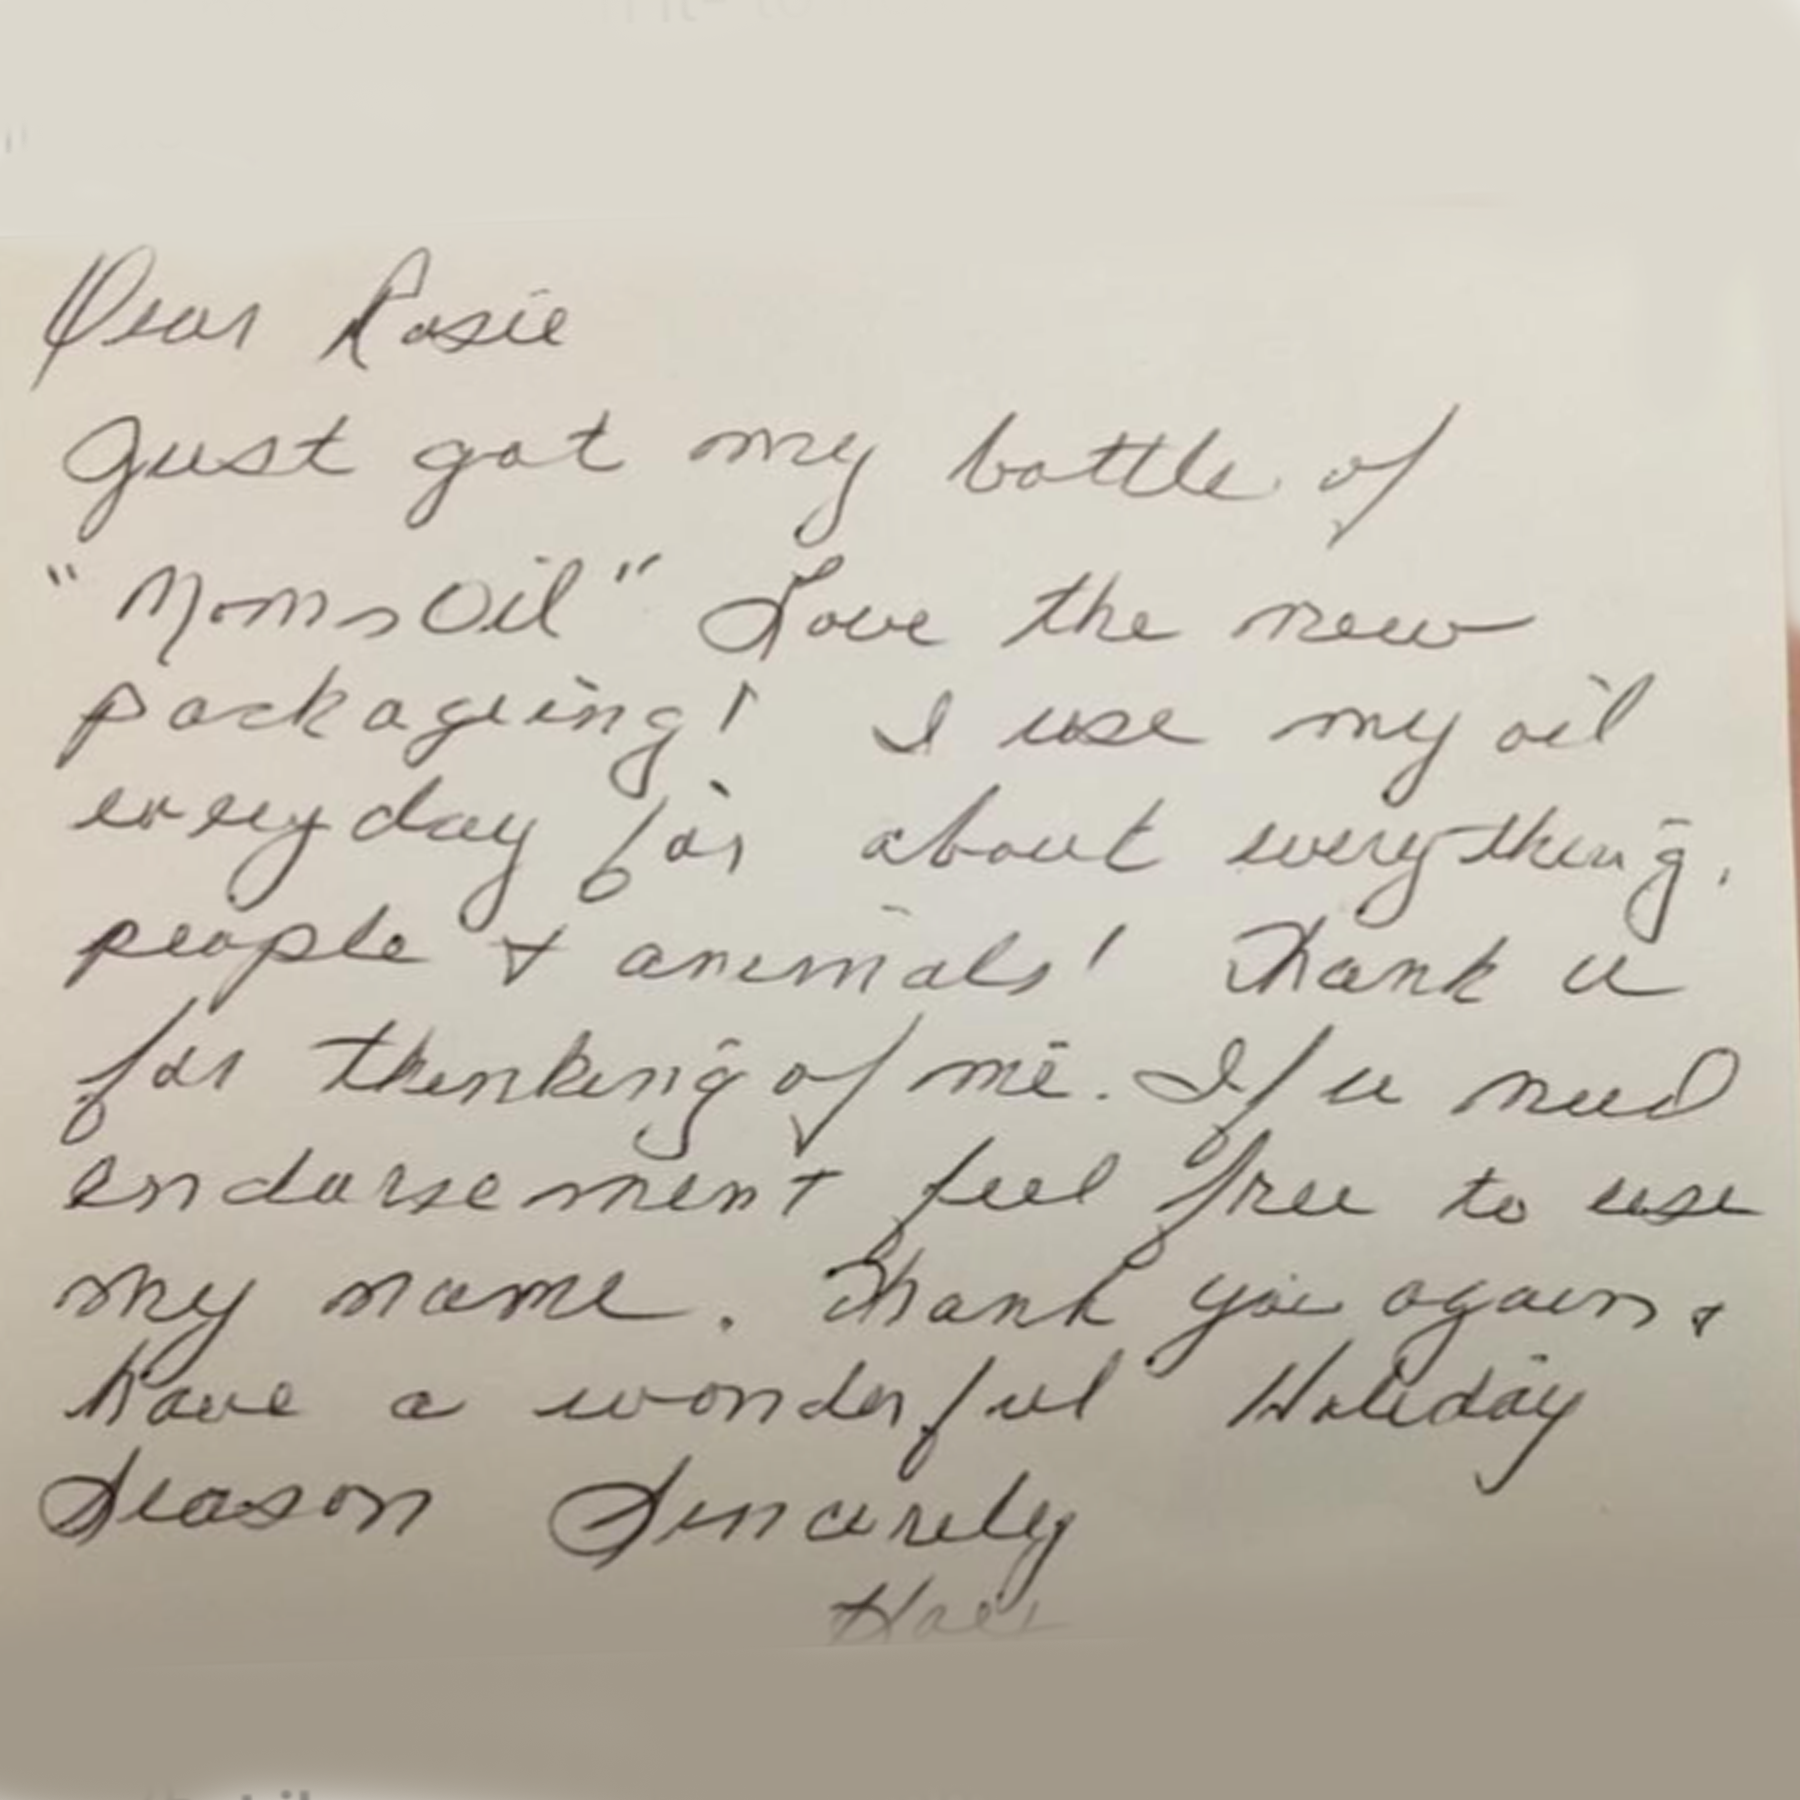 Dear Rosie
Just got my bottle of
"Moms Oil" Love the new
packageing! I use my oil
everyday for about everything,
people & animals! Thank u
for thinking of me. If u need
endorsement feel free to use
my name. Thank you again &
have a wonderful Holiday
Season Sincerely